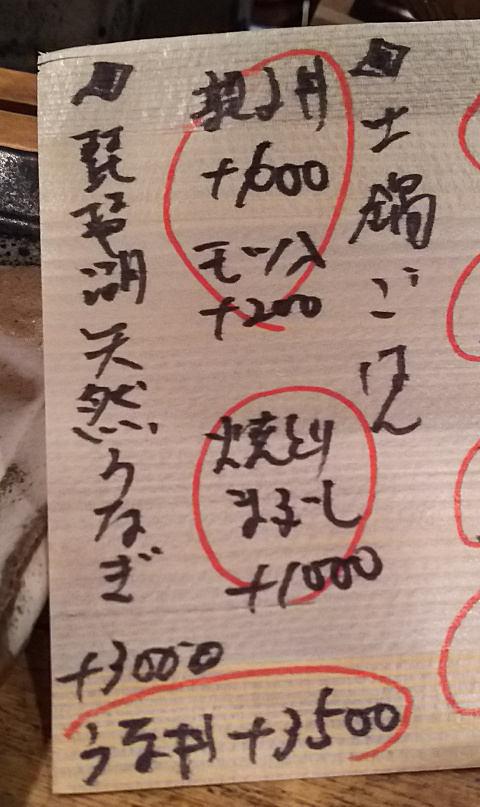 土鍋ごはん
親子丼
+600
+200
焼とり
まぶし
+1000
琵琶湖天然うなぎ
+3000
うな丼 +3500